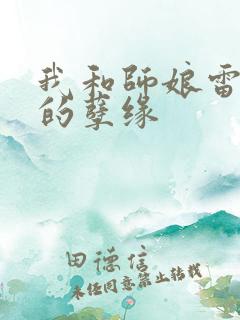 我和師娘雷
的孽缘
田德信
未经同意禁止转载